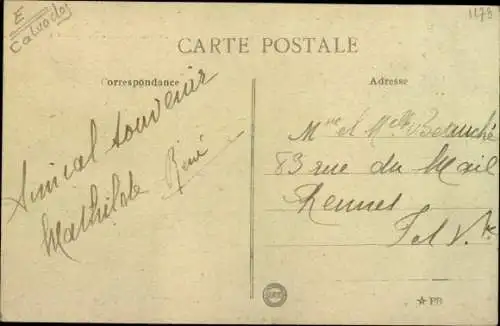 E
Calvados
1179
CARTE POSTALE
Correspondance
Adresse
Amical souvenir
Mathilde René
Mme et Melle
83 rue du Mail
Rennes
I et V.
★ PB